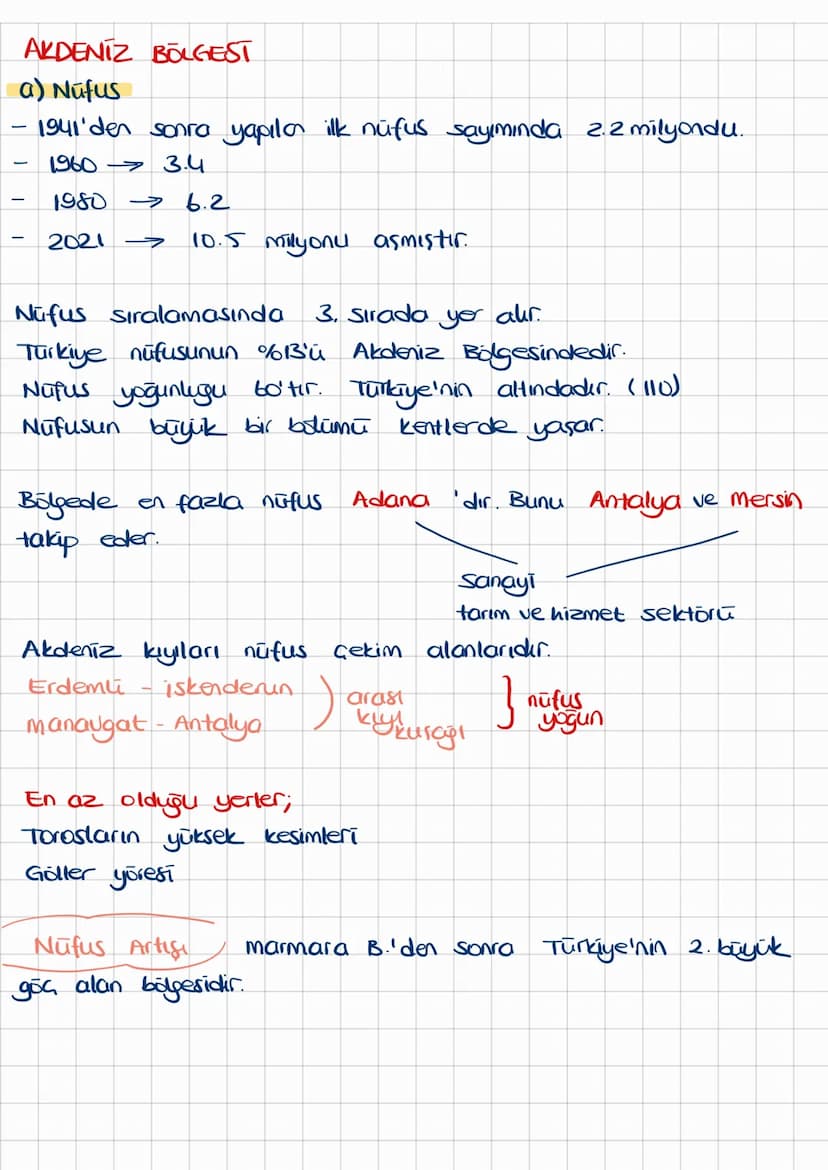 AKDENİZ BÖLGESİ
a) Nüfus
- 1941'den sonra yapılan ilk nüfus sayımında 2.2 milyondu.
- 1960 → 3.4
- 1980 → 6.2
- 2021 → 10.5 milyonu aşmıştır.
Nüfus sıralamasında 3. sırada yer alır.
Türkiye nüfusunun %13'ü Akdeniz Bölgesindedir.
Nüfus yoğunlugu 60'tır. Türkiye'nin altındadır. (110)
Nüfusun büyük bir bölümü kentlerde yaşar.
Bölgede en fazla nüfus Adana 'dır. Bunu Antalya ve mersin
takip eder.
sanayi
tarım ve hizmet sektörü
Akdeniz kıyıları nüfus çekim alanlarıdır.
Erdemli - iskenderun
manavgat - Antalya
) arası
kıyı
kuşağı
} nüfus
yoğun
En az olduğu yerler;
Torosların yüksek kesimleri
Göller yöresi
Nüfus Artışı marmara B.'den sonra Türkiye'nin 2. büyük
göç alan bölgesidir.